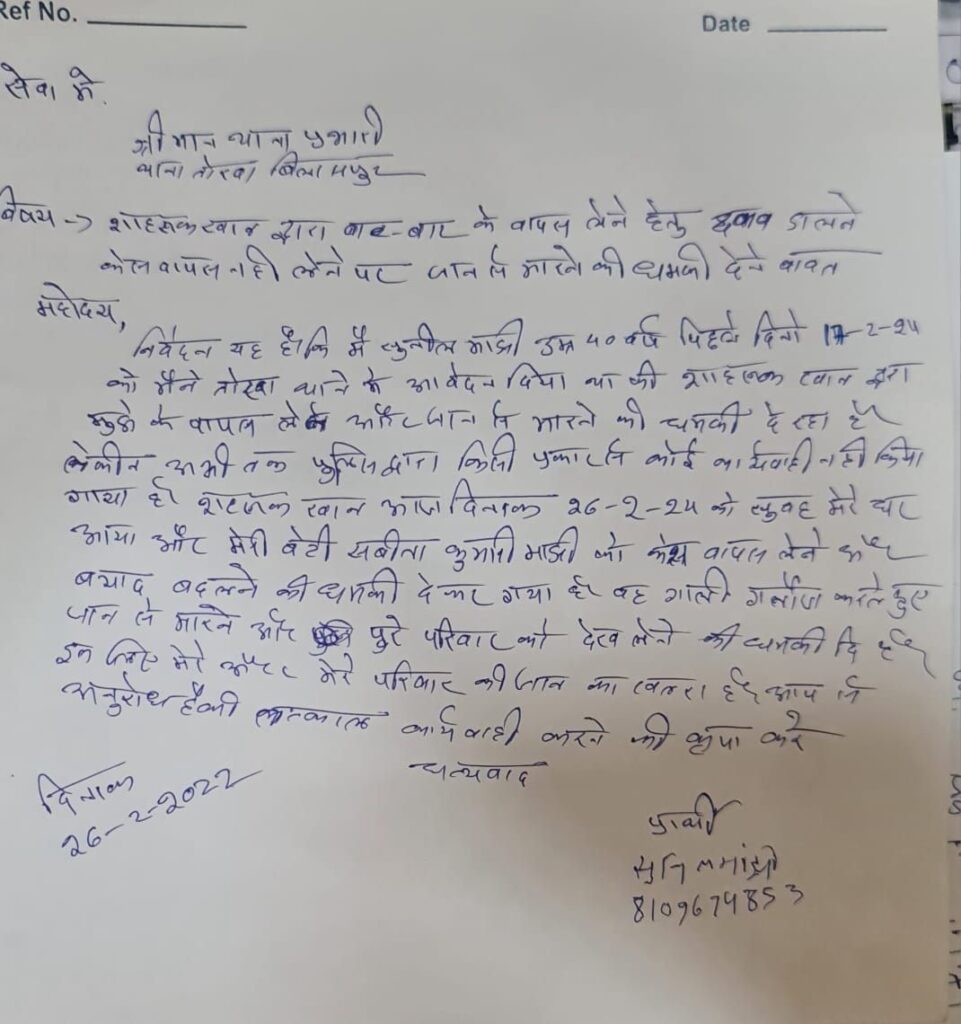 Ref No.
Date
सेवा में.
श्रीमान थाना प्रभारी
थाना तोरवा बिलासपुर
विषय → शाहरूक खान द्वारा बार-बार के वापस लेने हेतु दबाव डालने
केस वापस नही लेने पर जान से मारने की धमकी देने बाबत
महोदय,
निवेदन यह है कि मै सुनील माझी उम्र 40 वर्ष पिछले दिनो 17-2-24
को मैने तोरवा थाने मे आवेदन दिया था की शाहरूक खान द्वारा
मुझे के वापस लेने और जान से मारने की धमकी दे रहा है
लेकीन अभी तक पुलिस द्वारा किसी प्रकार से कोई कार्यवाही नही किया
गया है। शाहरूक खान आज दिनांक 26-2-24 को सुबह मेरे घर
आया और मेरी बेटी सबीता कुमारी माझी को केस वापस लेने और
बयाद बदलने की धमकी दे कर गया है वह गाली गलौज करते हुए
जान से मारने और पुरे परिवार को देख लेने की धमकी दि है
इस लिए मेरे और मेरे परिवार की जान का खतरा है आप से
अनुरोध है की तत्काल कार्यवाही करने की कृपा करे
धन्यवाद
दिनांक
26-2-2022
प्रार्थी
सुनिल मांझी
8109674853